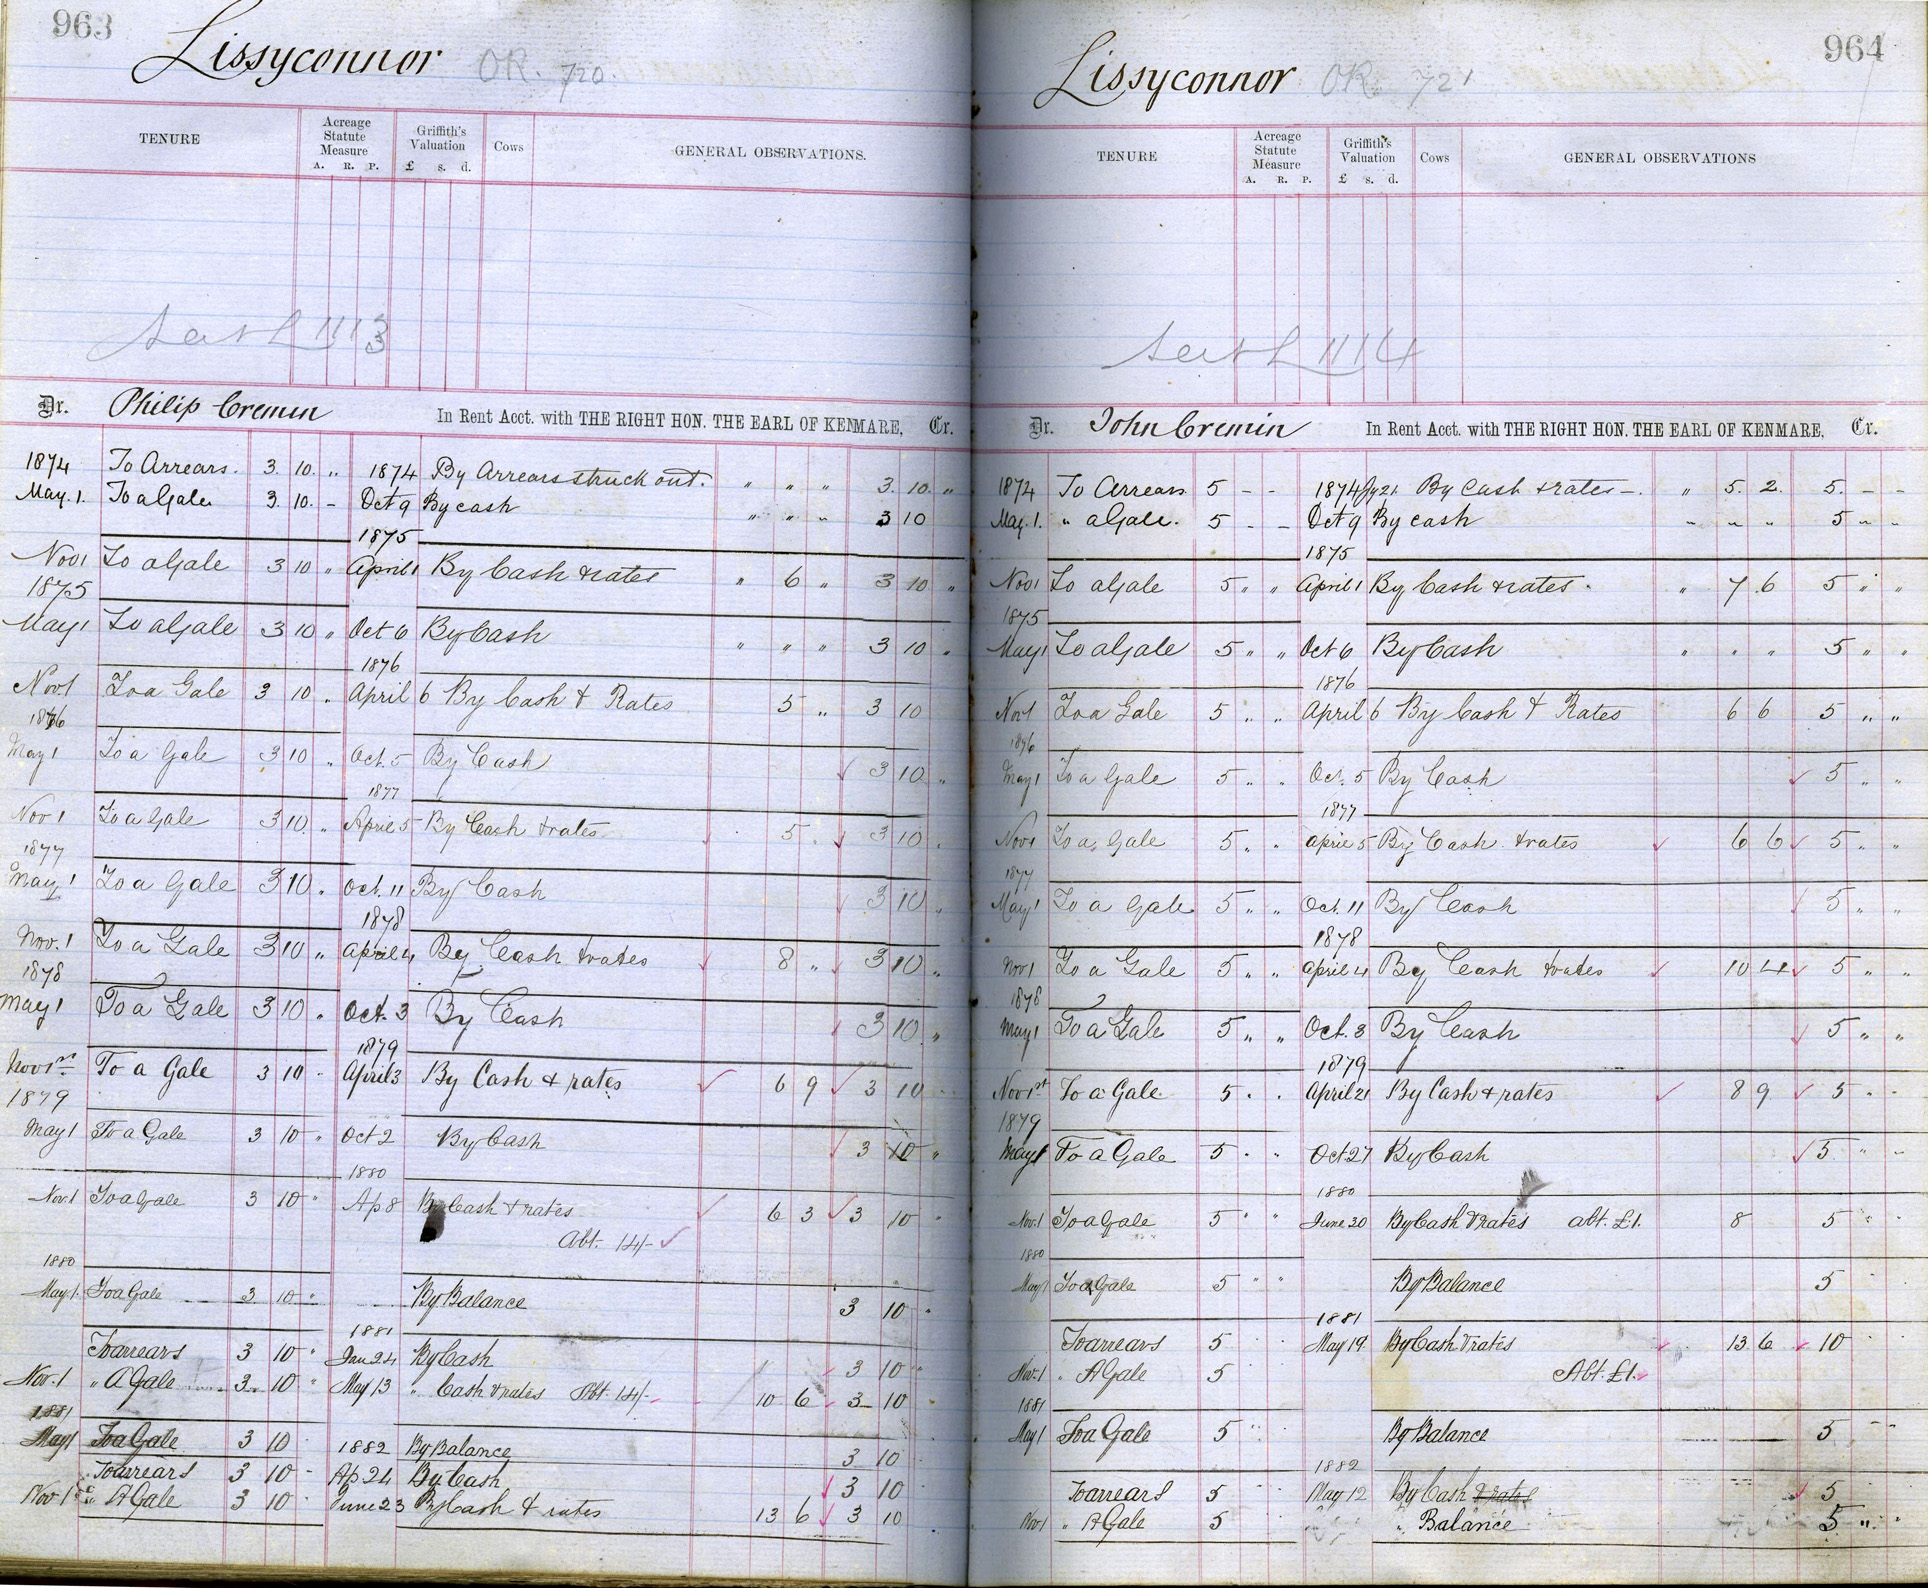 963
Lissyconnor OR. 720.
TENURE
Acreage Statute Measure
A. R. P.
Griffith's Valuation
£ s. d.
Cows
GENERAL OBSERVATIONS.
1113
Dr. Philip Cremin In Rent Acct. with THE RIGHT HON. THE EARL OF KENMARE, Cr.
1874 To Arrears. 3. 10. „ 1874 By Arrears struck out. „ „ „ 3. 10. „
May. 1. To a Gale 3. 10. – Oct 9 By cash „ „ „ 3 10
1875
Nov 1 To a Gale 3 10 „ April 1 By Cash & rates „ 6 „ 3 10 „
1875
May 1 To a Gale 3 10 „ Oct 6 By Cash „ „ „ 3 10 „
1876
Nov. 1 To a Gale 3 10 „ April 6 By Cash & Rates 5 „ 3 10
1876
May 1 To a Gale 3 10 „ Oct. 5 By Cash 3 10 „
1877
Nov 1 To a Gale 3 10 „ April 5 By Cash & rates 5 „ 3 10 „
1877
May 1 To a Gale 3 10 „ Oct. 11 By Cash 3 10 „
1878
Nov. 1 To a Gale 3 10 „ April 4 By Cash & rates 8 „ 3 10 „
1878
May 1 To a Gale 3 10 „ Oct. 3 By Cash 3 10 „
1879
Nov 1st To a Gale 3 10 - April 3 By Cash & rates 6 9 3 10
1879
May 1 To a Gale 3 10 „ Oct 2 By Cash 3 10 „
1880
Nov. 1 To a Gale 3 10 „ Ap 8 By Cash & rates 6 3 3 10 „
Abt. 14/-
1880
May 1. To a Gale 3 10 „ By Balance 3 10 „
1881
To arrears 3 10 „ Jan 24 By Cash 3 10 „
Nov. 1 „ A Gale 3 10 „ May 13 „ Cash & rates Abt. 14/- 10 6 3 10
1881
May 1 To a Gale 3 10 1882 By Balance 3 10
To arrears 3 10 - Ap 24 By Cash 3 10
Nov 1st „ A Gale 3 10 June 23 By Cash & rates 13 6 3 10
964
Lissyconnor OR. 721
TENURE
Acreage Statute Measure
A. R. P.
Griffith's Valuation
£ s. d.
Cows
GENERAL OBSERVATIONS
1114
Dr. John Cremin In Rent Acct. with THE RIGHT HON. THE EARL OF KENMARE, Cr.
1874 To Arrears 5 – – 1874 Jy 21. By Cash & rates –. „ 5. 2. 5. – –
May. 1. „ a Gale. 5 – – Oct 9 By cash „ „ „ 5 „ „
1875
Nov 1 To a Gale 5 „ „ April 1 By Cash & rates. „ 7 6 5 „ „
1875
May 1 To a Gale 5 „ „ Oct 6 By Cash „ „ „ 5 „ „
1876
Nov 1 To a Gale 5 „ „ April 6 By Cash & Rates 6 6 5 „ „
1876
May 1 To a Gale 5 „ „ Oct. 5 By Cash 5 „ „
1877
Nov 1 To a Gale 5 „ „ April 5 By Cash & rates 6 6 5 „ „
1877
May 1 To a Gale 5 „ „ Oct. 11 By Cash 5 „ „
1878
Nov 1 To a Gale 5 „ „ April 4 By Cash & rates 10 4 5 „ „
1878
May 1 To a Gale 5 „ „ Oct. 3 By Cash 5 „ „
1879
Nov 1st To a Gale 5 „ „ April 21 By Cash & rates 8 9 5 „ „
1879
May 1 To a Gale 5 „ „ Oct 27 By Cash 5 „ „
1880
Nov. 1 To a Gale 5 „ „ June 30 By Cash & rates abt. £1. 8 5 „
1880
May 1 To a Gale 5 „ „ By Balance 5
1881
To arrears 5 May 19 By Cash & rates 13 6 10
Nov. 1 „ A Gale 5 Abt. £1.
1881
May 1 To a Gale 5 By Balance 5
1882
To arrears 5 May 12 By Cash & rates 5
Nov 1 „ A Gale 5 „ Balance 5 „ „